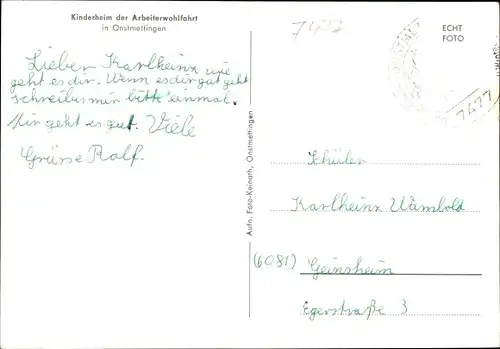 Kinderheim der Arbeiterwohlfahrt
in Onstmettingen
7477
ECHT
FOTO
7477
Lieber Karlheinz wie
geht es dir. Wenn es dir gut geht
schreibe mir bitte einmal.
Mir geht es gut. Viele
Grüsse Ralf.
Aufn. Foto-Keinath, Onstmettingen
Schüler
Karlheinz
(6081) Geinsheim
Egerstraße 3